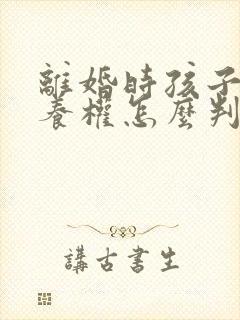 離婚時孩子
養權怎麼判
講古書生